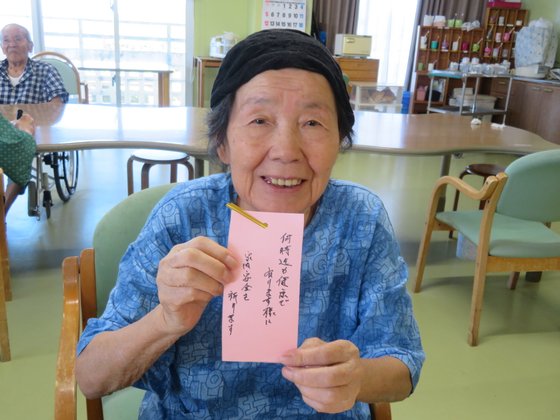 何時迄も健康で
有ります様に
家内安全を
祈ります